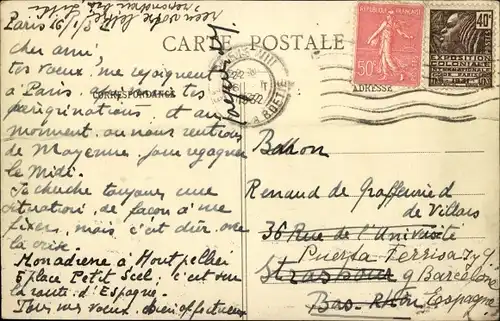 Paris 16/1/32
CARTE POSTALE
CORRESPONDANCE
ADRESSE
REPUBLIQUE FRANÇAISE
50c
40c
EXPOSITION
PARIS
1932
R. LA BOETIE
cher ami,
tes vœux me rejoignent
à Paris, après toutes
pérégrinations et au
moment où nous rentrons
de Mayenne pour regagner
le Midi.
Je cherche toujours une
situation de façon à me
fixer, mais c'est dur avec
la crise
Mon adresse à Montpellier
5 place Petit Scel, c'est sur
la route d'Espagne.
Tous nos vœux bien affectueux
Baron
Renaud de Graffenried
de Villars
36 Rue de l'Université
Puerta Ferrisa 7 y 9
Strasbourg
Barcelone
Bas-Rhin
Espagne